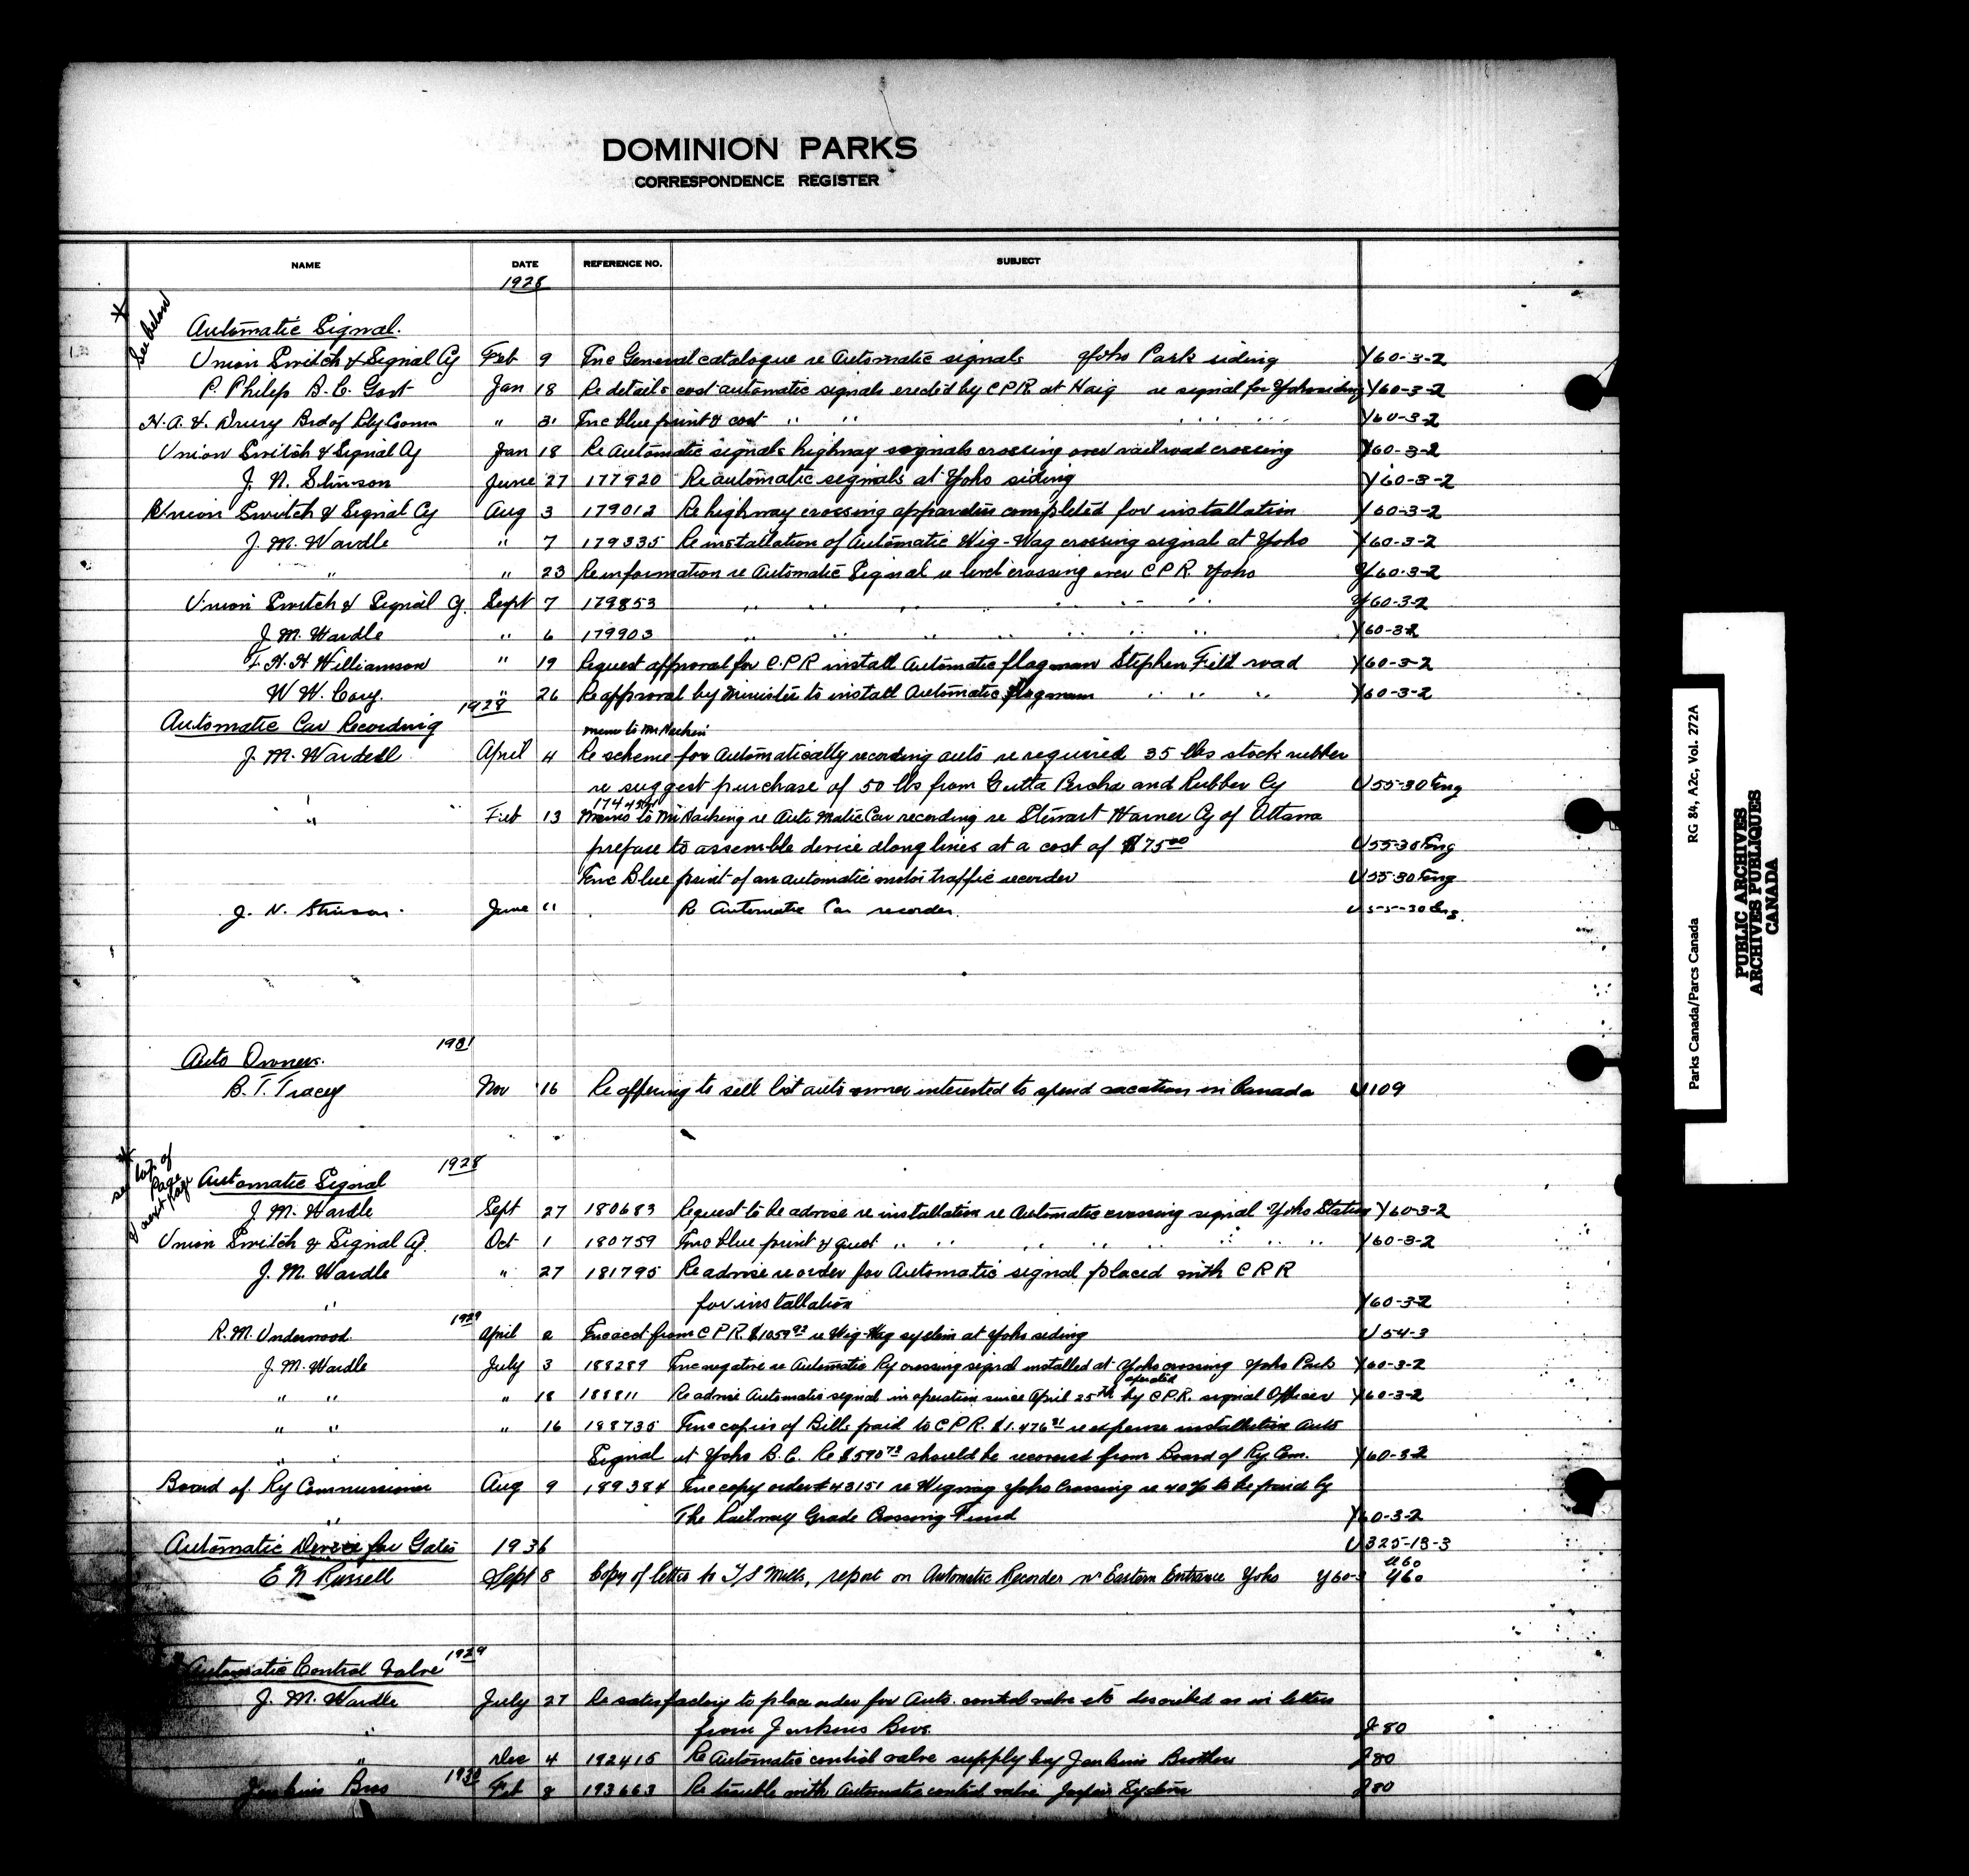 DOMINION PARKS
CORRESPONDENCE REGISTER
NAME DATE REFERENCE NO. SUBJECT
1928
* See below
Automatic Signal.
Union Switch & Signal Cy Feb 9 Enc General catalogue re Automatic signals Yoho Park siding Y60-3-2
P. Philip B.C. Govt Jan 18 Re details cost automatic signals erected by CPR at Haig re signal for Yoho siding Y60-3-2
Drury Brd of Rly Comm " 31 Enc blue print & cost " " Y60-3-2
Union Switch & Signal Cy Jan 18 Re Automatic signals highway signals crossing over railroad crossing Y60-3-2
J. N. Stinson June 27 177920 Re automatic signals at Yoho siding Y60-3-2
Union Switch & Signal Cy Aug 3 179012 Re highway crossing apparatus completed for installation Y60-3-2
J. M. Wardle " 7 179335 Re installation of Automatic Wig-Wag crossing signal at Yoho Y60-3-2
" " 23 Re information re Automatic Signal re level crossing over C.P.R. Yoho Y60-3-2
Union Switch & Signal Cy. Sept 7 179853 " " " " " " " Y60-3-2
J. M. Wardle " 6 179903 " " " " " " " Y60-3-2
H. H. Williamson " 19 Request approval for C.P.R install Automatic flagman Stephen Field road Y60-3-2
W. W. Cory. " 26 Re approval by Minister to install Automatic flagman " " " Y60-3-2
1928
Automatic Car Recording memo to Mr
J. M. Wardell April 4 Re scheme for Automatically recording auto re required 35 lbs stock rubber
re suggest purchase of 50 lbs from Gutta Percha and Rubber Cy U55-30 Eng
" Feb 13 Memo to Mr Harkin re Auto Matic Car recording re Stewart Warner Cy of Ottawa
prepare to assemble device along lines at a cost of $75.00 U55-30 Eng
Enc Blue print of an automatic motor traffic recorder U55-30 Eng
J. N. Stinson. June 11 Re Automatic Car recorder. U55-30 Eng.
1931
Auto Owners.
B. T. Tracey Nov 16 Re offering to sell list auto owner interested to spend vacation in Canada U109
* see top of Page & next page
1928
Automatic Signal
J. M. Wardle Sept 27 180683 Request to be advise re installation re Automatic crossing signal Yoho Station Y60-3-2
Union Switch & Signal Cy. Oct 1 180759 Enc blue print & quot " " " " " " " " Y60-3-2
J. M. Wardle " 27 181795 Re advise re order for Automatic signal placed with C P R
" for installation Y60-3-2
1929
R. M. Underwood April 2 Enc acct from C.P.R. $1059.92 re Wig-Wag system at Yoho siding U54-3
J. M. Wardle July 3 188289 Enc negative re Automatic Ry crossing signal installed at Yoho crossing Yoho Park Y60-3-2
operated
" " " 18 188811 Re advise Automatic signal in operation since April 25th by C.P.R. signal Officer Y60-3-2
" " " 16 188735 Enc copies of Bills paid to C.P.R. $1,476.81 re expense installation Auto
" " Signal at Yoho B.C. Re $590.73 should be recovered from Board of Ry Com. Y60-3-2
Board of Ry Commissioner Aug 9 189384 Enc copy order # 43151 re Wigwag Yoho Crossing re 40% to be paid by
" The Railway Grade Crossing Fund Y60-3-2
Automatic Device for Gates 1936 U325-13-3
U60
E N Russell Sept 8 Copy of letter to T S Mills, report on Automatic Recorder nr Eastern Entrance Yoho Y60-3 Y60
1929
Automatic Control Valve
J. M. Wardle July 27 Re satisfactory to place order for Auto. control valve etc described as in letters
" from Jenkins Bros. J80
" Dec 4 192415 Re Automatic control valve supply by Jenkins Brothers J80
1930
Jenkins Bros Feb 8 193663 Re trouble with Automatic control valve Jasper System J80
RG 84, A2c, Vol. 272A
Parks Canada/Parcs Canada
PUBLIC ARCHIVES
ARCHIVES PUBLIQUES
CANADA